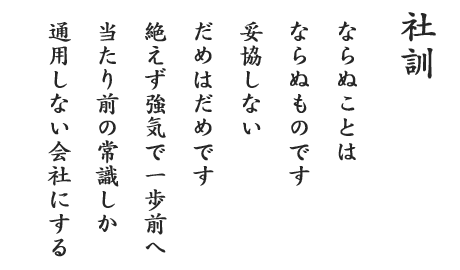 社訓
ならぬことは
ならぬものです
妥協しない
だめはだめです
絶えず強気で一歩前へ
当たり前の常識しか
通用しない会社にする